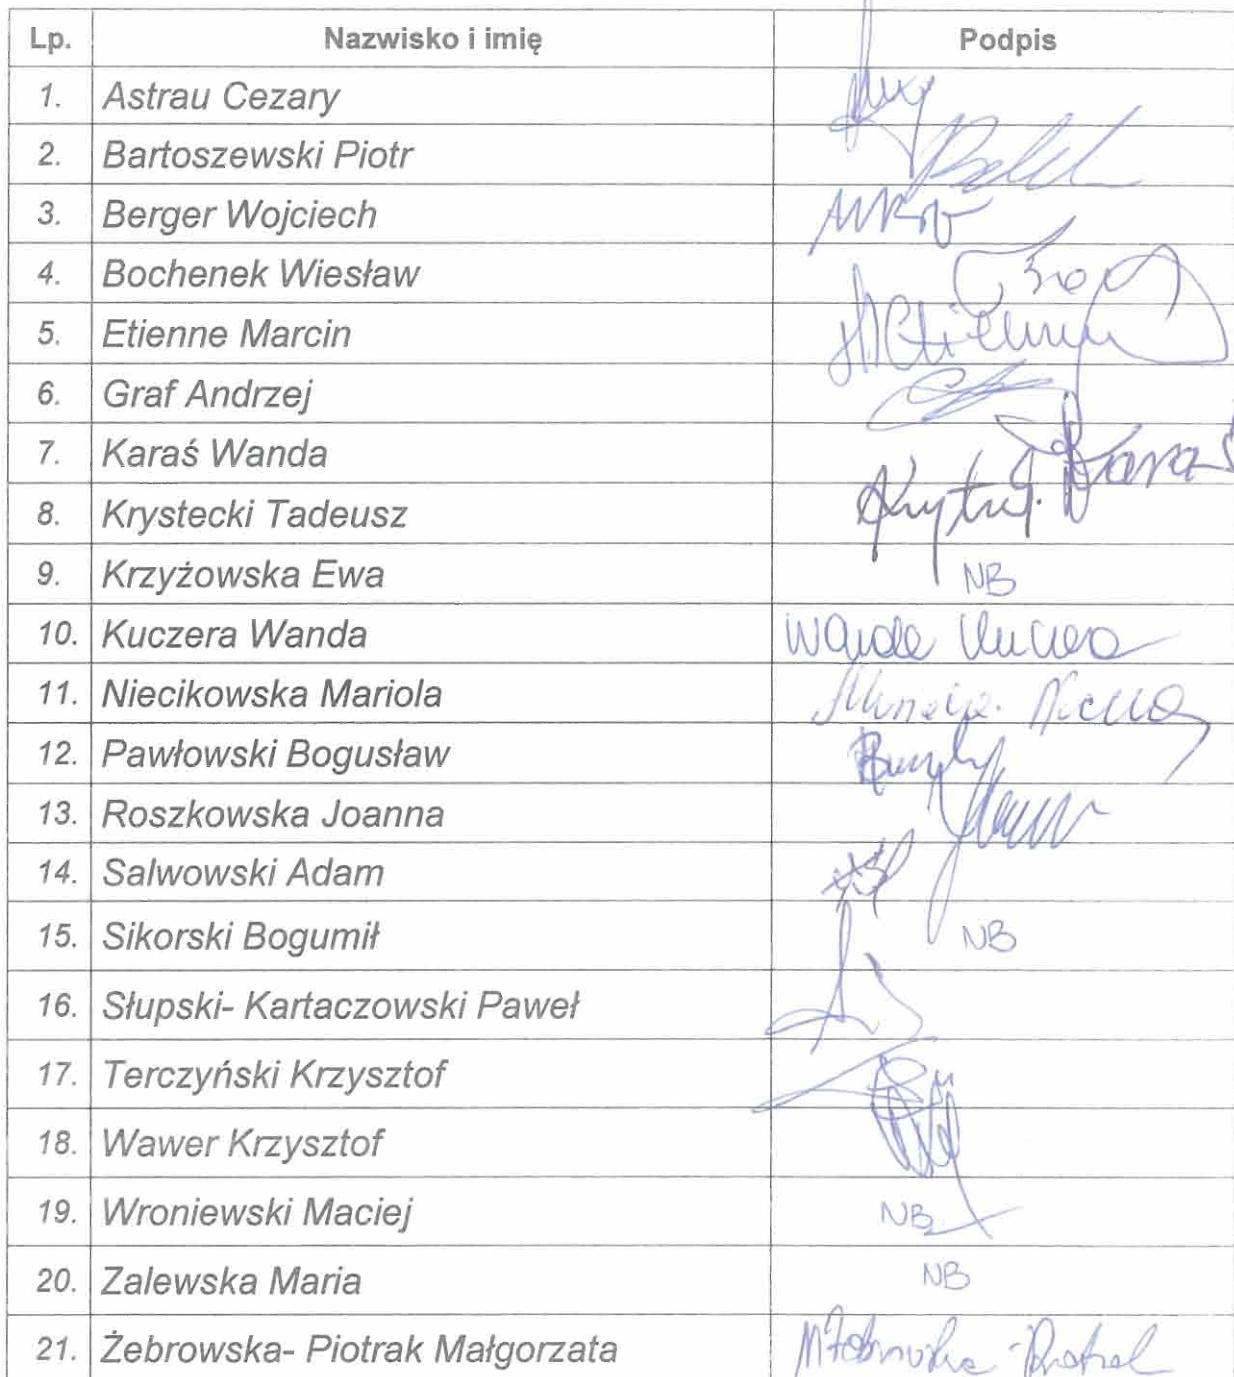 Lp. Nazwisko i imię Podpis
1. Astrau Cezary
2. Bartoszewski Piotr
3. Berger Wojciech
4. Bochenek Wiesław
5. Etienne Marcin
6. Graf Andrzej
7. Karaś Wanda Karaś
8. Krystecki Tadeusz
9. Krzyżowska Ewa NB
10. Kuczera Wanda Wanda Kuczera
11. Niecikowska Mariola
12. Pawłowski Bogusław
13. Roszkowska Joanna
14. Salwowski Adam
15. Sikorski Bogumił NB
16. Słupski- Kartaczowski Paweł
17. Terczyński Krzysztof
18. Wawer Krzysztof
19. Wroniewski Maciej NB
20. Zalewska Maria NB
21. Żebrowska- Piotrak Małgorzata